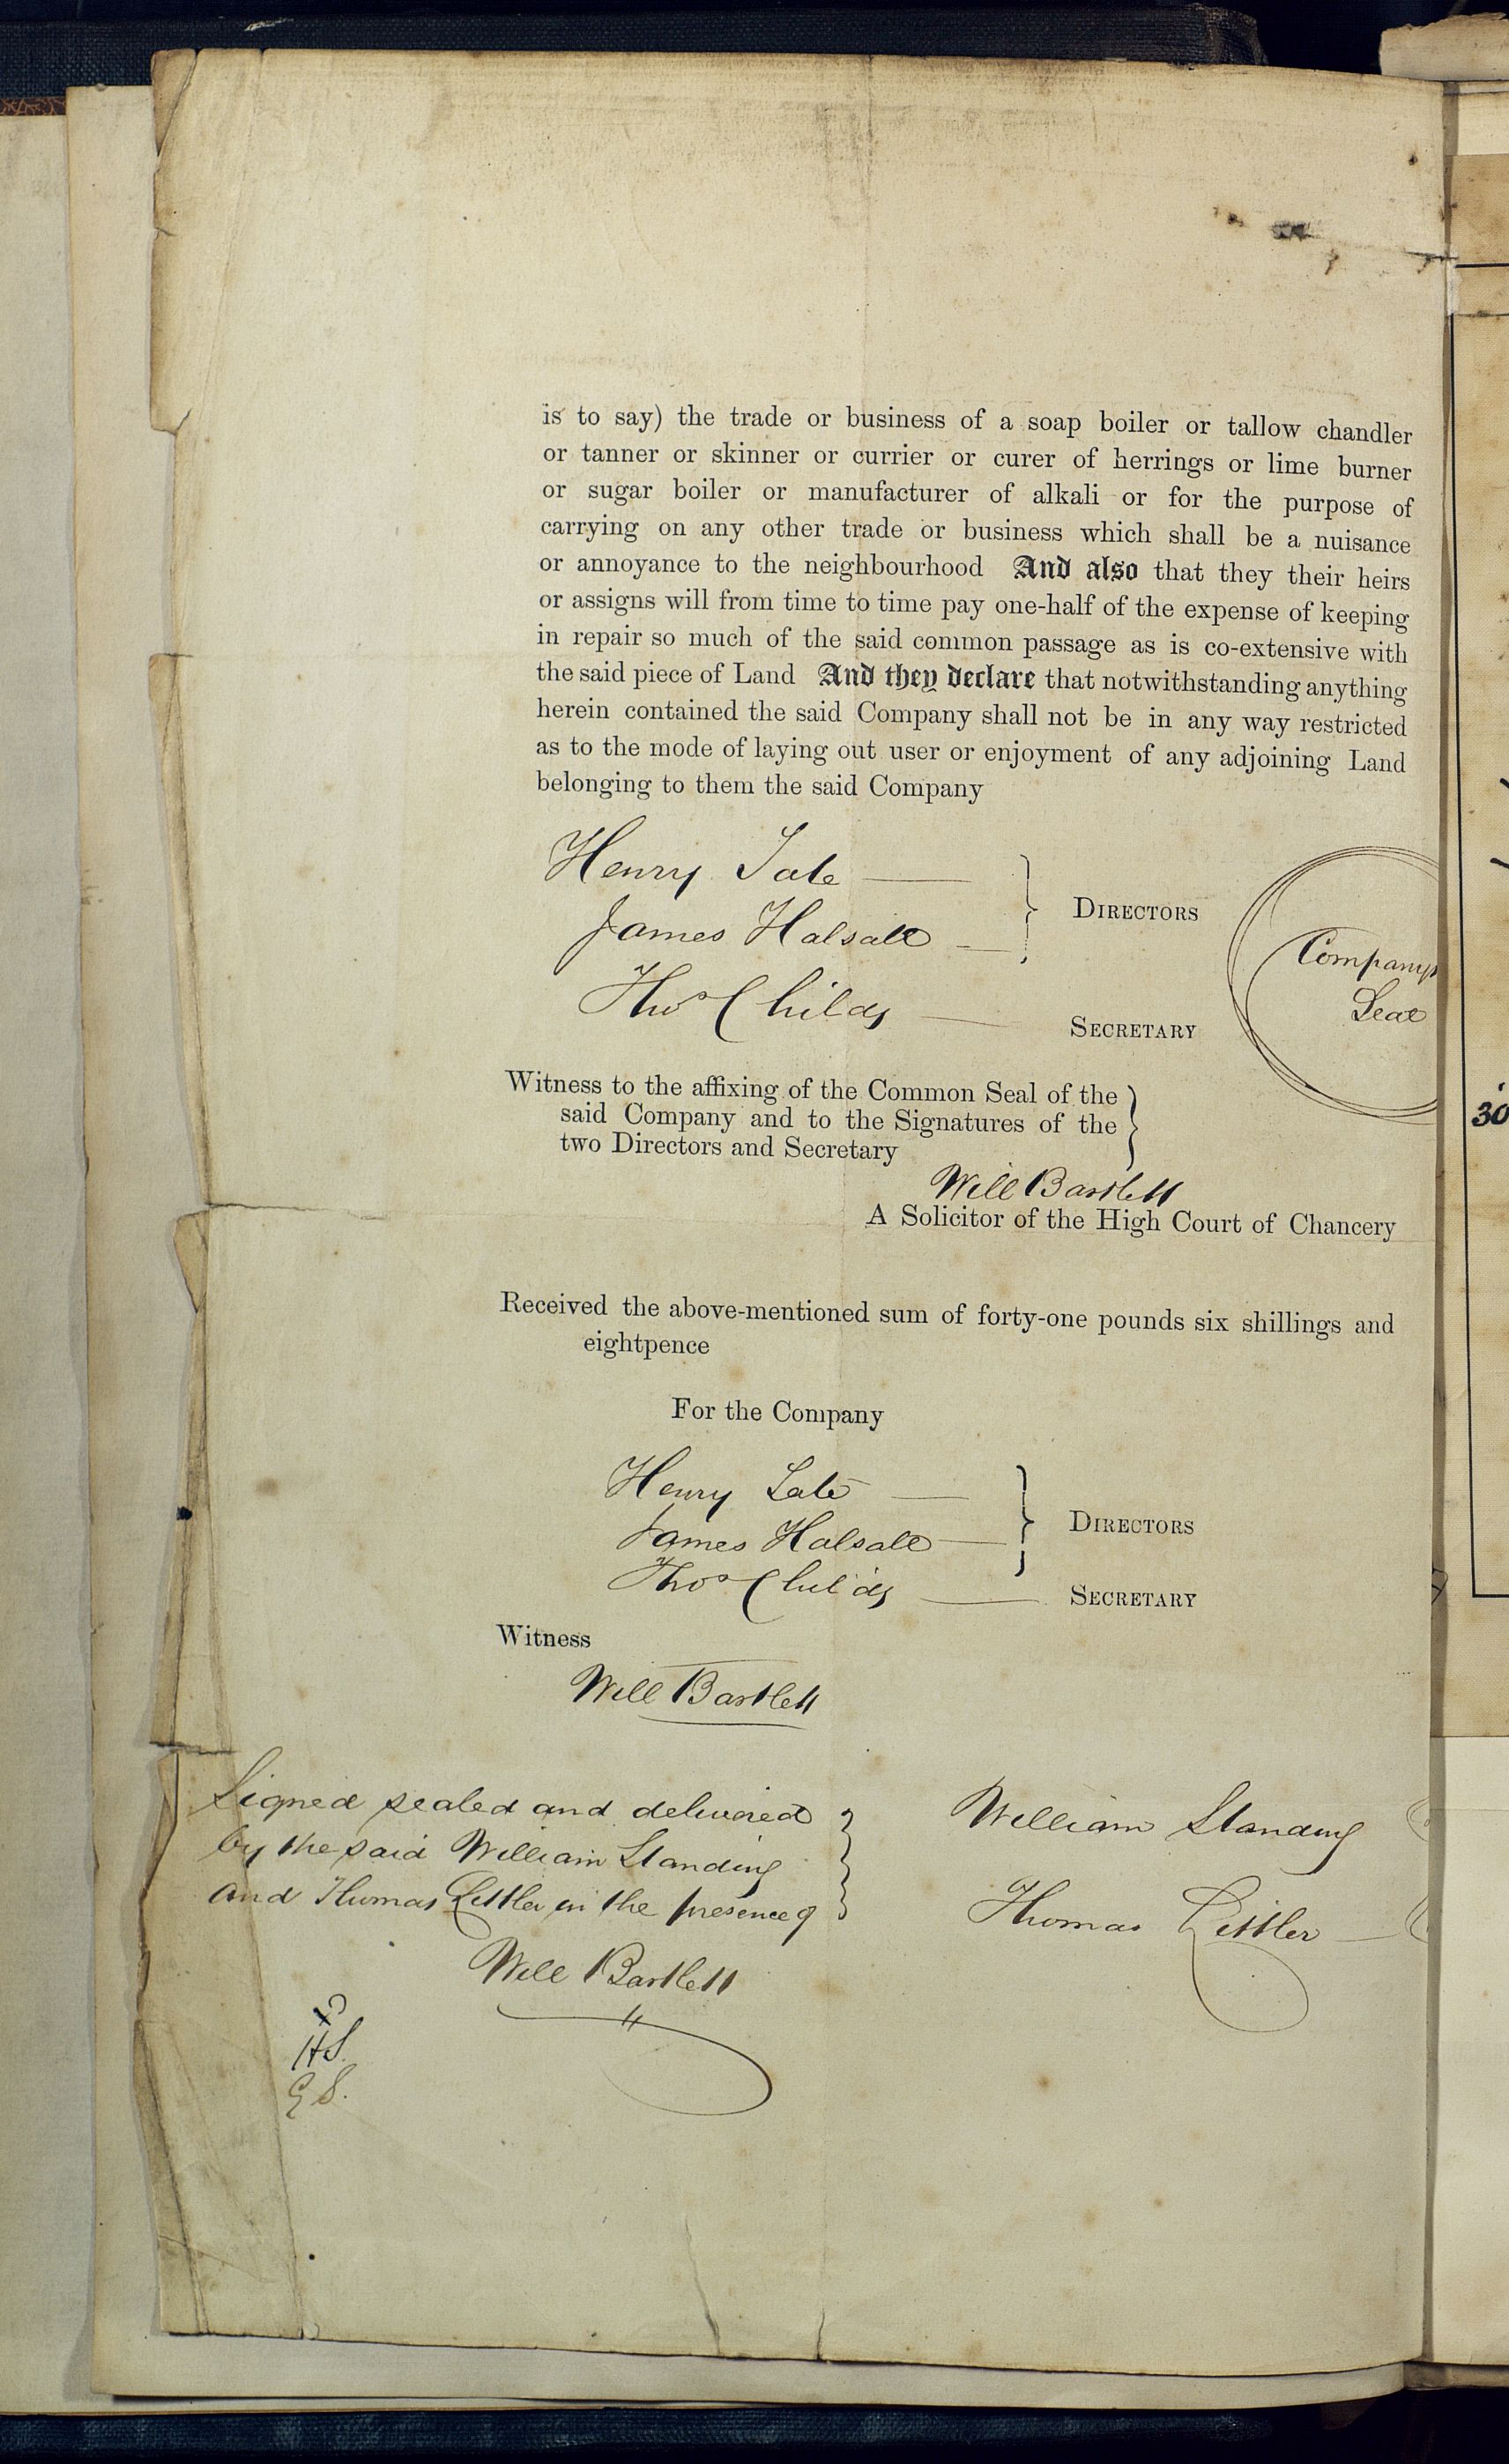 is to say) the trade or business of a soap boiler or tallow chandler
or tanner or skinner or currier or curer of herrings or lime burner
or sugar boiler or manufacturer of alkali or for the purpose of
carrying on any other trade or business which shall be a nuisance
or annoyance to the neighbourhood And also that they their heirs
or assigns will from time to time pay one-half of the expense of keeping
in repair so much of the said common passage as is co-extensive with
the said piece of Land And they declare that notwithstanding anything
herein contained the said Company shall not be in any way restricted
as to the mode of laying out user or enjoyment of any adjoining Land
belonging to them the said Company
Henry Tate
James Halsall
DIRECTORS
Thos Childs
SECRETARY
Companys
Seal
Witness to the affixing of the Common Seal of the
said Company and to the Signatures of the
two Directors and Secretary
Will Bartlett
A Solicitor of the High Court of Chancery
Received the above-mentioned sum of forty-one pounds six shillings and
eightpence
For the Company
Henry Tate
James Halsall
DIRECTORS
Thos Childs
SECRETARY
Witness
Will Bartlett
Signed sealed and delivered
by the said William Standing
and Thomas Littler in the presence of
William Standing
Thomas Littler
Will Bartlett
HS.
30